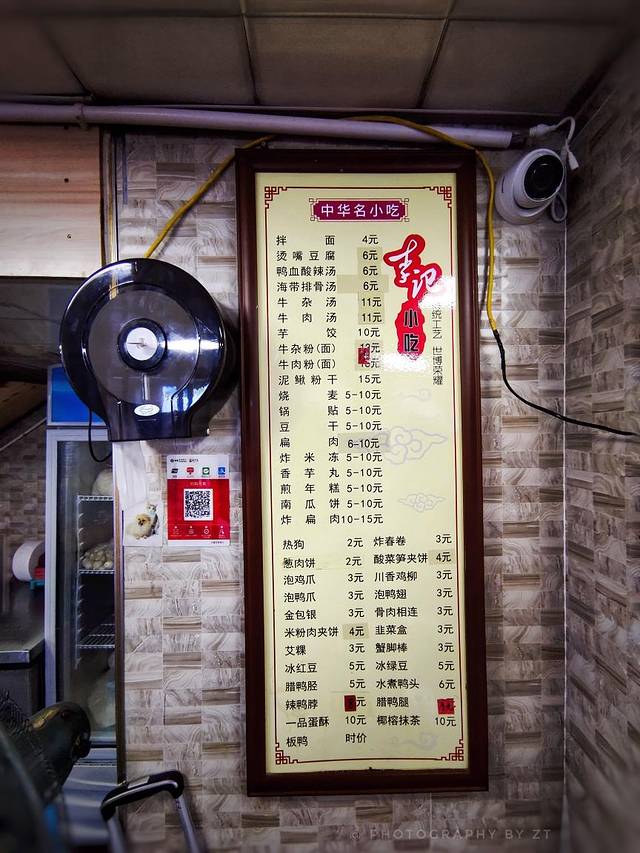 中华名小吃
拌面 4元
烫嘴豆腐 6元
鸭血酸辣汤 6元
海带排骨汤 6元
牛杂汤 11元
牛肉汤 11元
芋饺 10元
牛杂粉(面)
牛肉粉(面)
泥鳅粉干 15元
烧麦 5-10元
锅贴 5-10元
豆干 5-10元
扁肉 6-10元
炸米冻 5-10元
香芋丸 5-10元
煎年糕 5-10元
南瓜饼 5-10元
炸扁肉 10-15元
李记
小吃
统工艺 世博荣耀
热狗 2元 炸春卷 3元
葱肉饼 2元 酸菜笋夹饼 4元
泡鸡爪 3元 川香鸡柳 3元
泡鸭爪 3元 泡鸭翅 3元
金包银 3元 骨肉相连 3元
米粉肉夹饼 4元 韭菜盒 3元
艾粿 3元 蟹脚棒 3元
冰红豆 5元 冰绿豆 5元
腊鸭胫 5元 水煮鸭头 6元
辣鸭脖 元 腊鸭腿
一品蛋酥 10元 椰榕抹茶 10元
板鸭 时价
@ PHOTOGRAPHY BY ZT